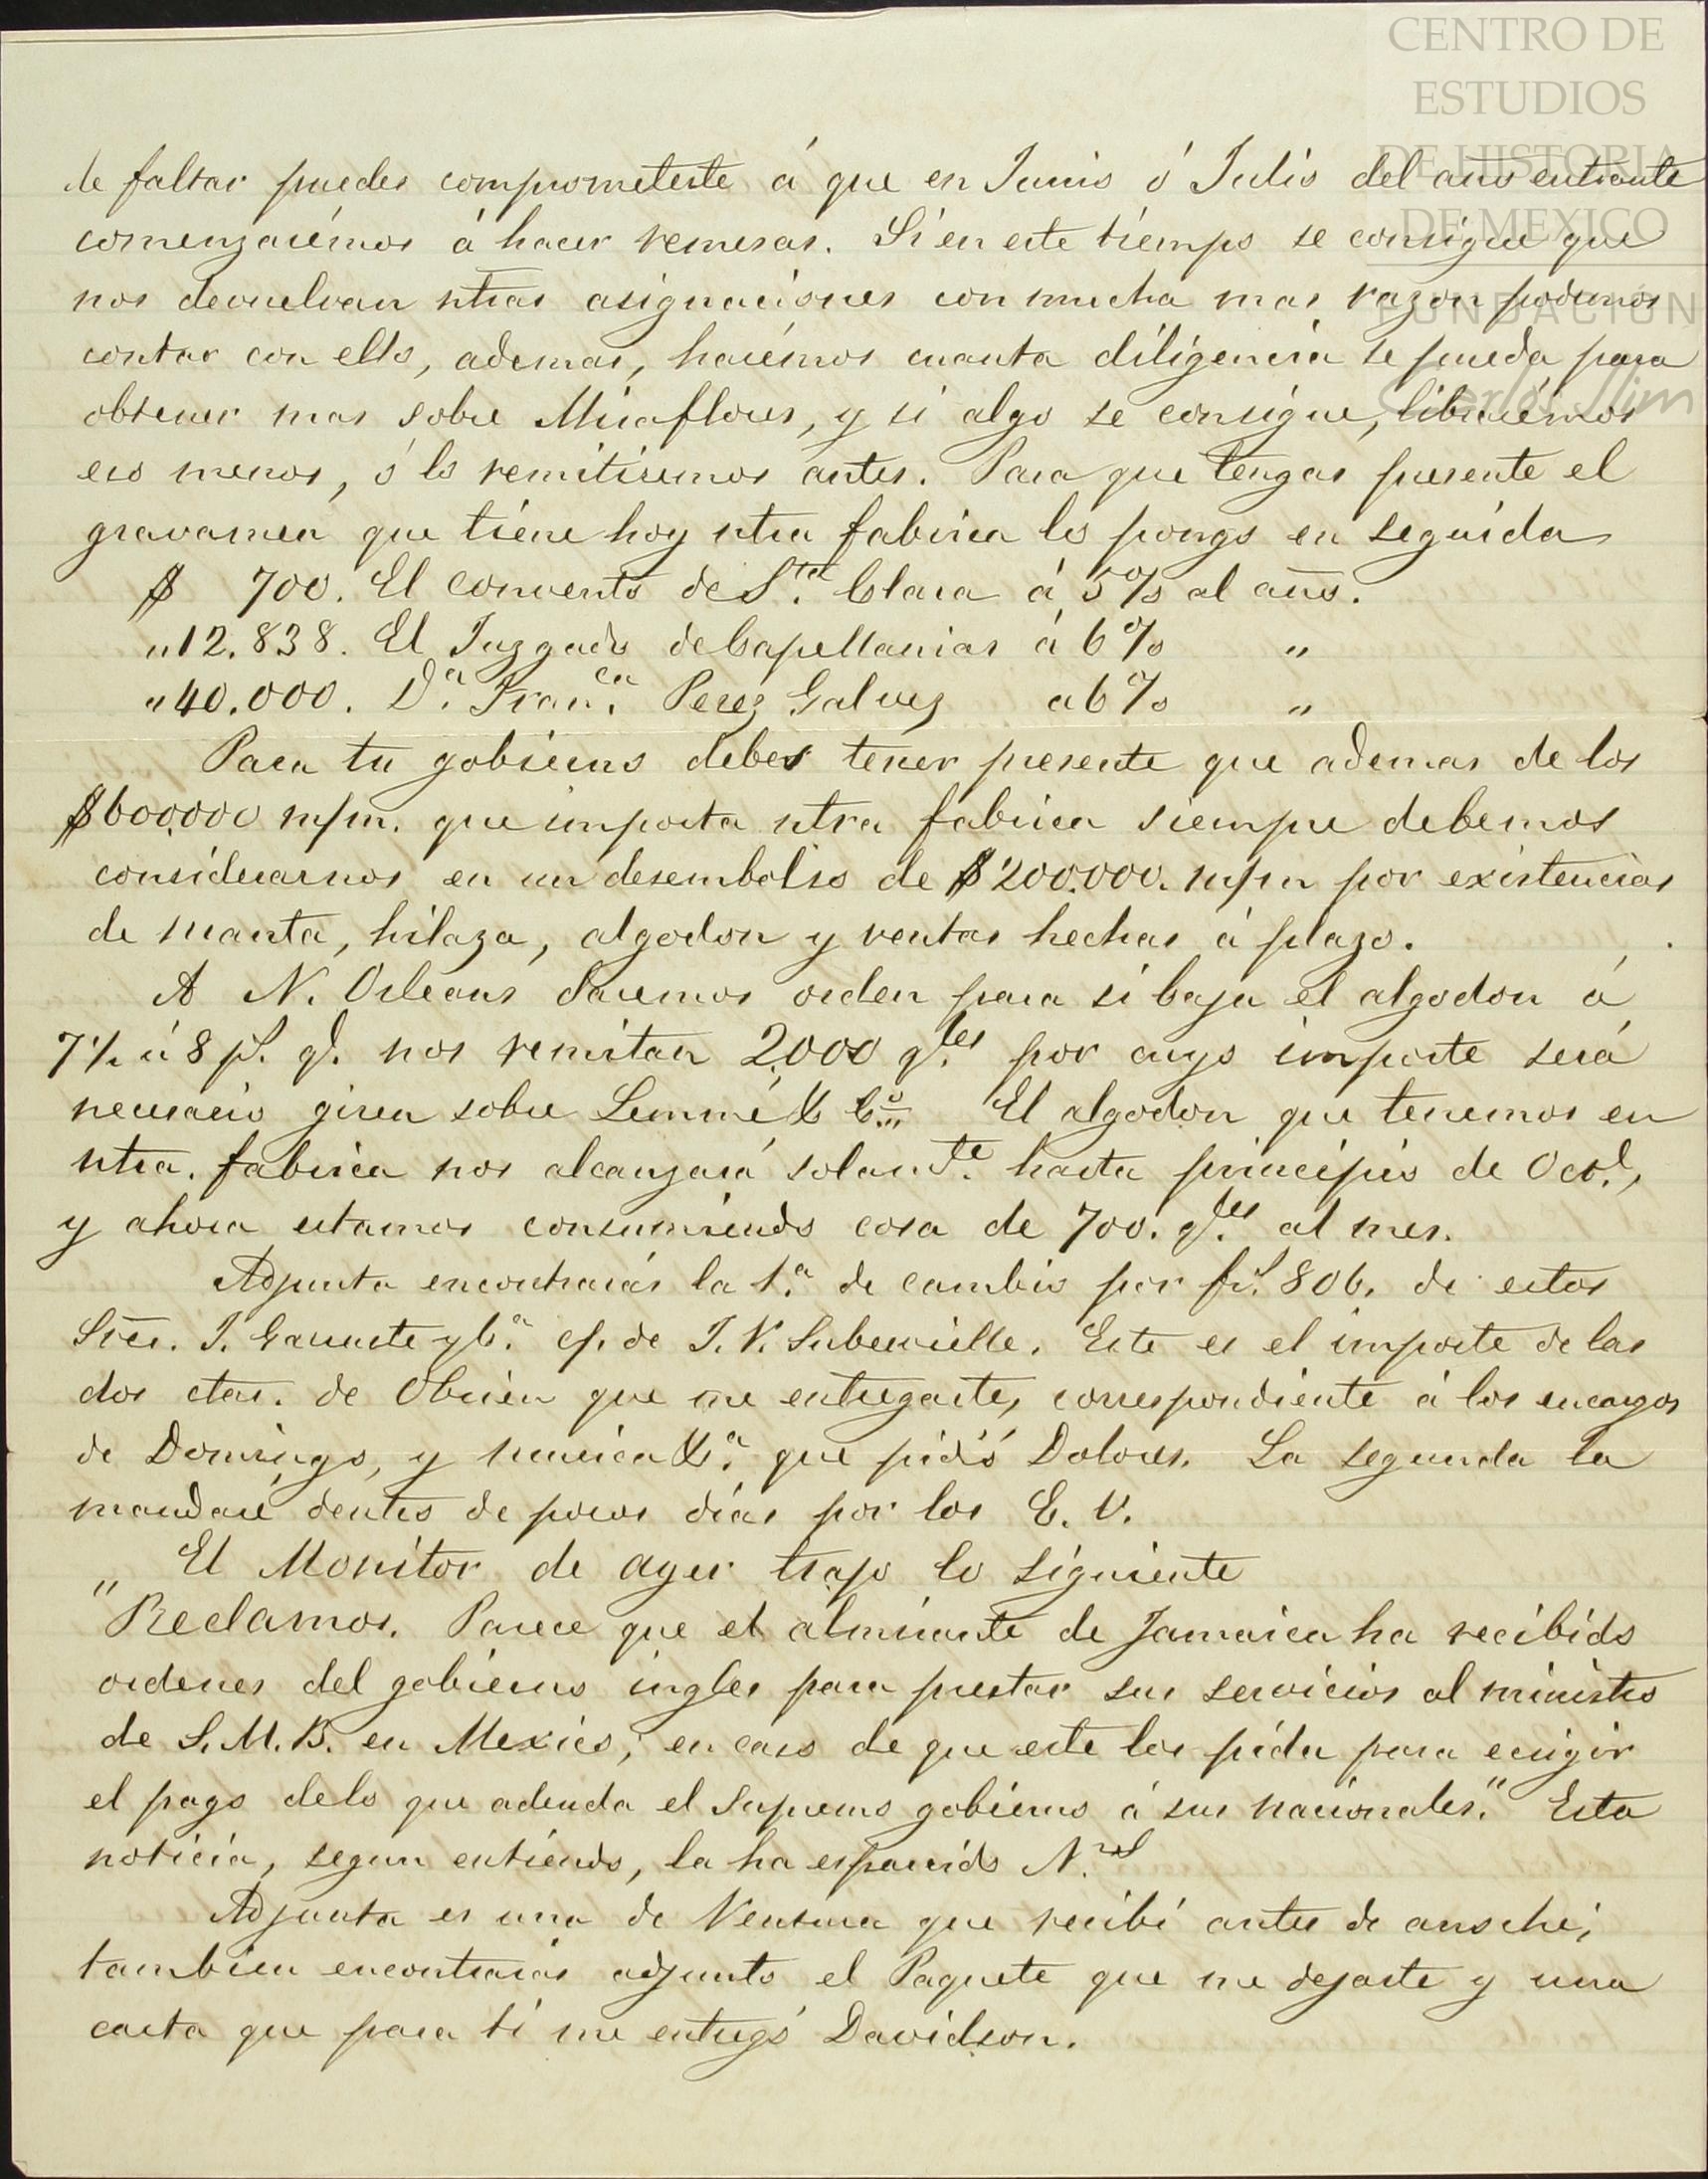 CENTRO DE
ESTUDIOS
DE HISTORIA
DE MEXICO
FUNDACIÓN
Carlos Slim
de faltar puedes comprometerte á que en Junio ó Julio del año entrante
comenzarémos á hacer remesas. Si en este tiempo se consigue que
nos devuelvan ntras asignaciones con mucha mas razon podemos
contar con ello, ademas, harémos cuanta diligencia se pueda para
obtener mas sobre Miraflores, y si algo se consigue, librarémos
eso menos, ó lo remitiremos antes. Para que tengas presente el
gravamen que tiene hoy ntra fabrica lo pongo en seguida
$ 700. El convento de Sta. Clara á 5% al año.
" 12.838. El Juzgado de Capellanias á 6% "
" 40.000. Da. Franca. Perez Galvez a 6% "
Para tu gobierno debes tener presente que ademas de los
$600.000 m/m. que importa ntra fabrica siempre debemos
considerarnos en un desembolso de $200.000. m/m por existencias
de manta, hilaza, algodon y ventas hechas á plazo.
A N. Orleans daremos orden para si baja el algodon á
7½ á 8 pS. ql. nos remitan 2.000 qles. por cuyo importe será
necesario giren sobre Lemmé & Co. El algodon que tenemos en
ntra. fabrica nos alcanzará solamte. hasta principio de Oct.,
y ahora estamos consumiendo cosa de 700. qles. al mes.
Adjunta encontrarás la 1.a de cambio por fs. 806. de estos
Sres. J. Garruste y Ca. c/. de J. V. Suberville. Este es el importe de las
dos ctas. de Obrien que me entregaste, correspondiente á los encargos
de Domingo, y musica &a. que pidió Dolores. La segunda la
mandaré dentro de pocos días por los E. U.
El Monitor de ayer trajo lo siguiente
"Reclamos. Parece que el almirante de Jamaica ha recibido
ordenes del gobierno ingles para prestar sus servicios al ministro
de S. M. B. en Mexico, en caso de que este los pida para ecsigir
el pago de lo que adeuda el Supremo gobierno á sus nacionales." Esta
noticia, segun entiendo, la ha esparcido N.
Adjunta es una de Ventura que recibí antes de anoche;
tambien encontrarás adjunto el Paquete que me dejaste y una
carta que para tí me entregó Davidson.